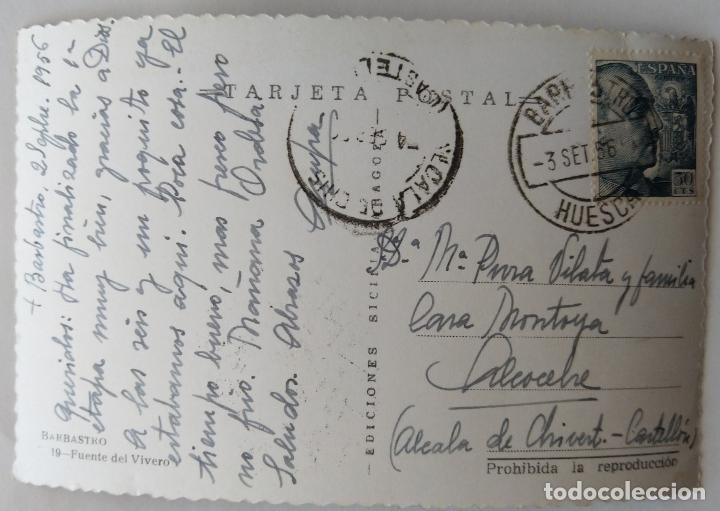 TARJETA POSTAL
+ Barbastro, 2 Septbre. 1956
Queridos: Ha finalizado la 1ª
etapa muy bien, gracias a Dios.
A las seis y un poquito ya
estabamos aqui. Poca cosa. El
tiempo bueno, mas fresco pero
no frio. Mañana Ordesa.
Saludos. Abrazos
BARBASTRO
19-Fuente del Vivero
EDICIONES SICILIA
ZARAGOZA
ALCALA DE CHISVERT
(CASTELLON)
ESPAÑA
30
CTS
BARBASTRO
-3 SET.56
HUESCA
D.ª Mª Pura Vilata y familia
Casa Montoya
Alcocebre
(Alcala de Chivert.-Castellón)
Prohibida la reproducción
todocoleccion
todocoleccion.net